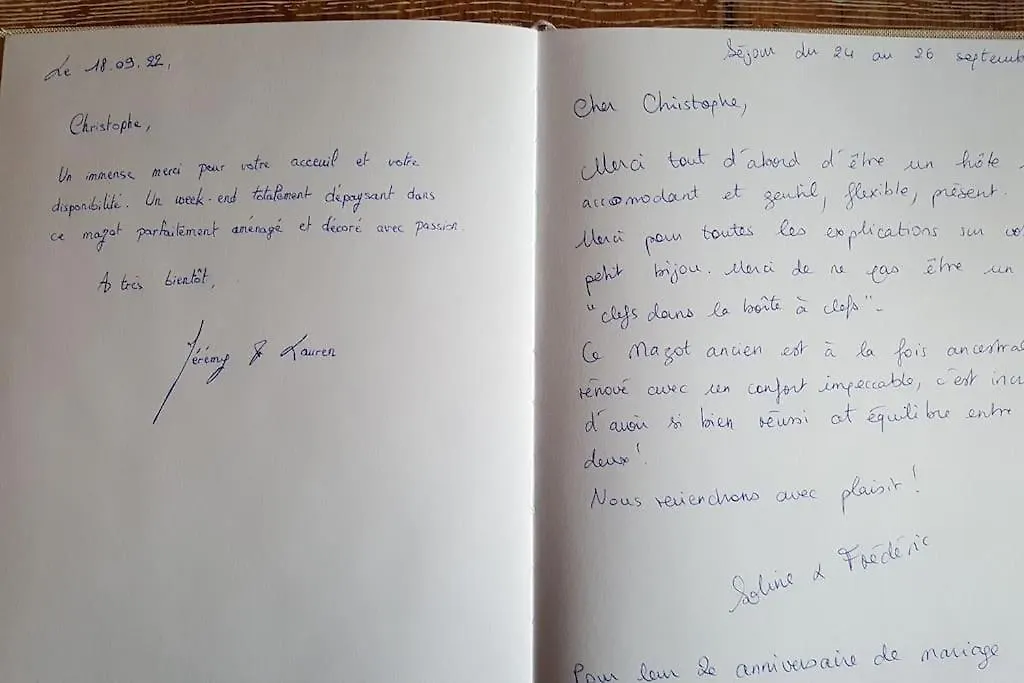 Le 18.09.22,
Christophe,
Un immense merci pour votre acceuil et votre
disponibilité. Un week-end totalement dépaysant dans
ce mazot parfaitement aménagé et décoré avec passion.
A très bientôt,
Jérémy & Lauren
Séjour du 24 au 26 septemb
Cher Christophe,
Merci tout d'abord d'être un hôte
accomodant et gentil, flexible, présent.
Merci pour toutes les explications sur vo
petit bijou. Merci de ne pas être un
"clefs dans la boîte à clefs".
Ce Mazot ancien est à la fois ancestral
rénové avec un confort impeccable, c'est inc
d'avoir si bien réussi cet équilibre entre
deux!
Nous reviendrons avec plaisir!
Soline & Frédéric
Pour leur 2e anniversaire de mariage